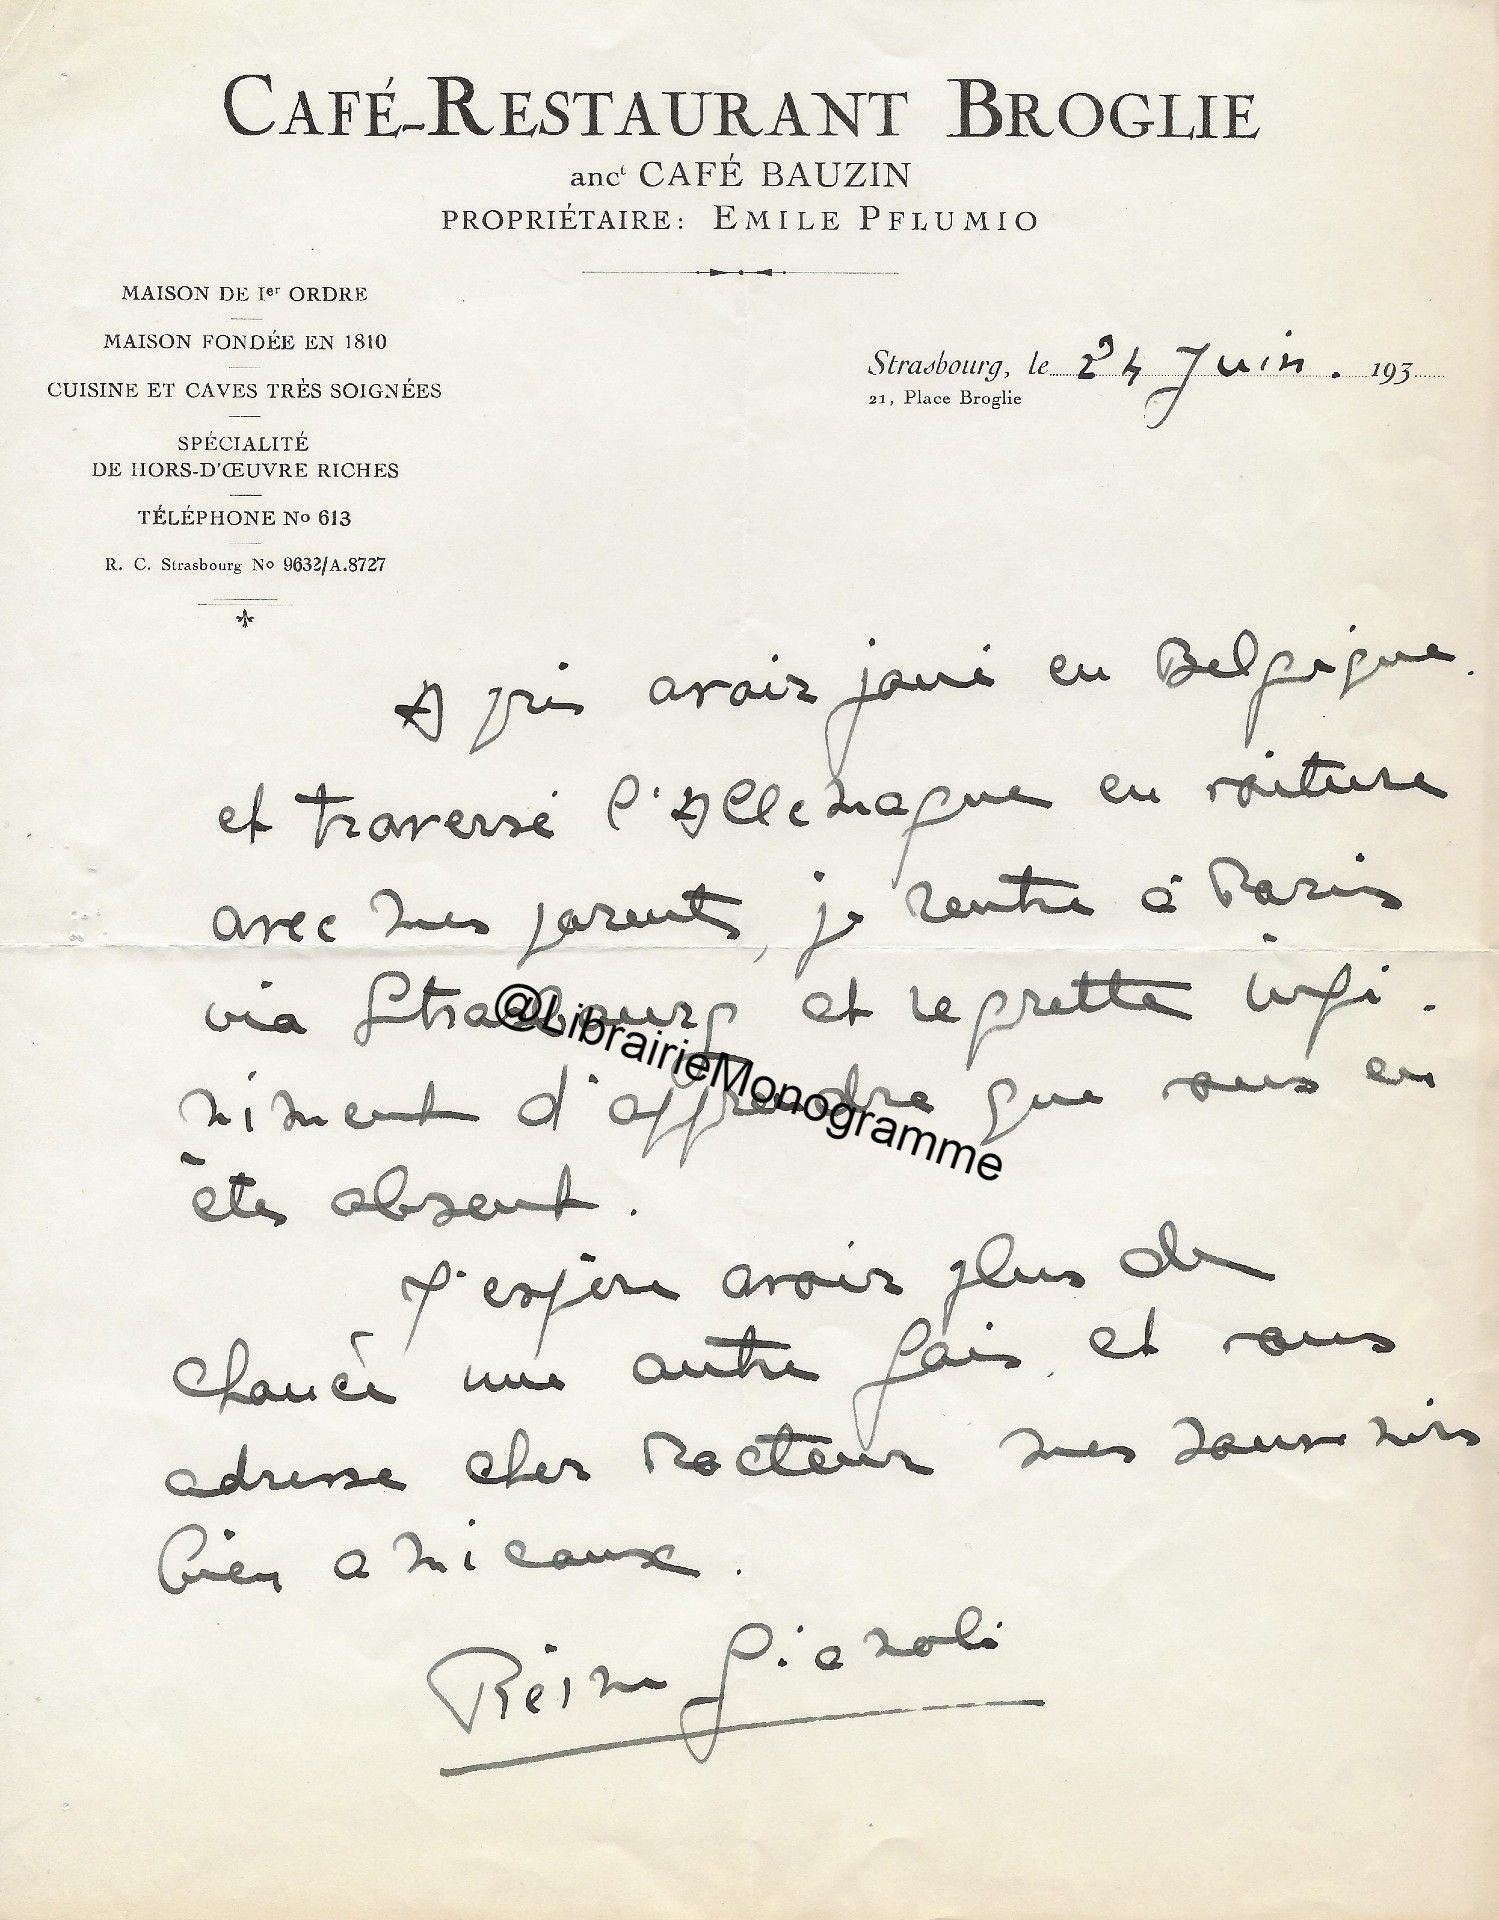 CAFÉ-RESTAURANT BROGLIE
anct CAFÉ BAUZIN
PROPRIÉTAIRE: EMILE PFLUMIO
MAISON DE Ier ORDRE
MAISON FONDÉE EN 1810
CUISINE ET CAVES TRÈS SOIGNÉES
SPÉCIALITÉ
DE HORS-D'ŒUVRE RICHES
TÉLÉPHONE No 613
R. C. Strasbourg No 9632/A.8727
Strasbourg, le 24 Juin. 193
21, Place Broglie
Après avoir joué en Belgique.
et traversé l'Allemagne en voiture
avec mes parents, je rentre à Paris
via Strasbourg et regrette infi-
niment d'apprendre que vous en
êtes absent.
J'espère avoir plus de
chance une autre fois. et vous
adresse cher Docteur mes souvenirs
bien amicaux.
Reine Gianoli
@LibrairieMonogramme